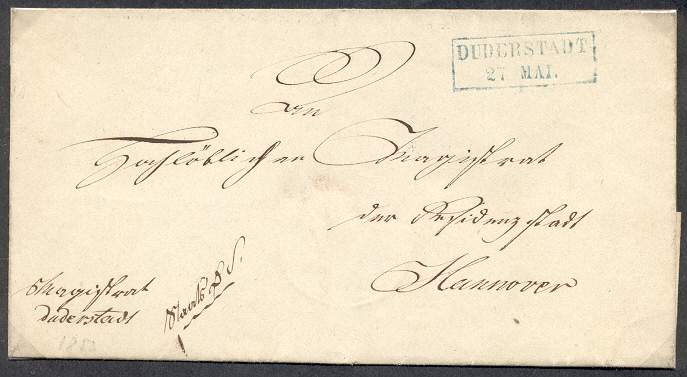 DUDERSTADT
27 MAI.
An
Hochlöblichen Magistrat
der Residenzstadt
Hannover
Magistrat
Duderstadt
S.